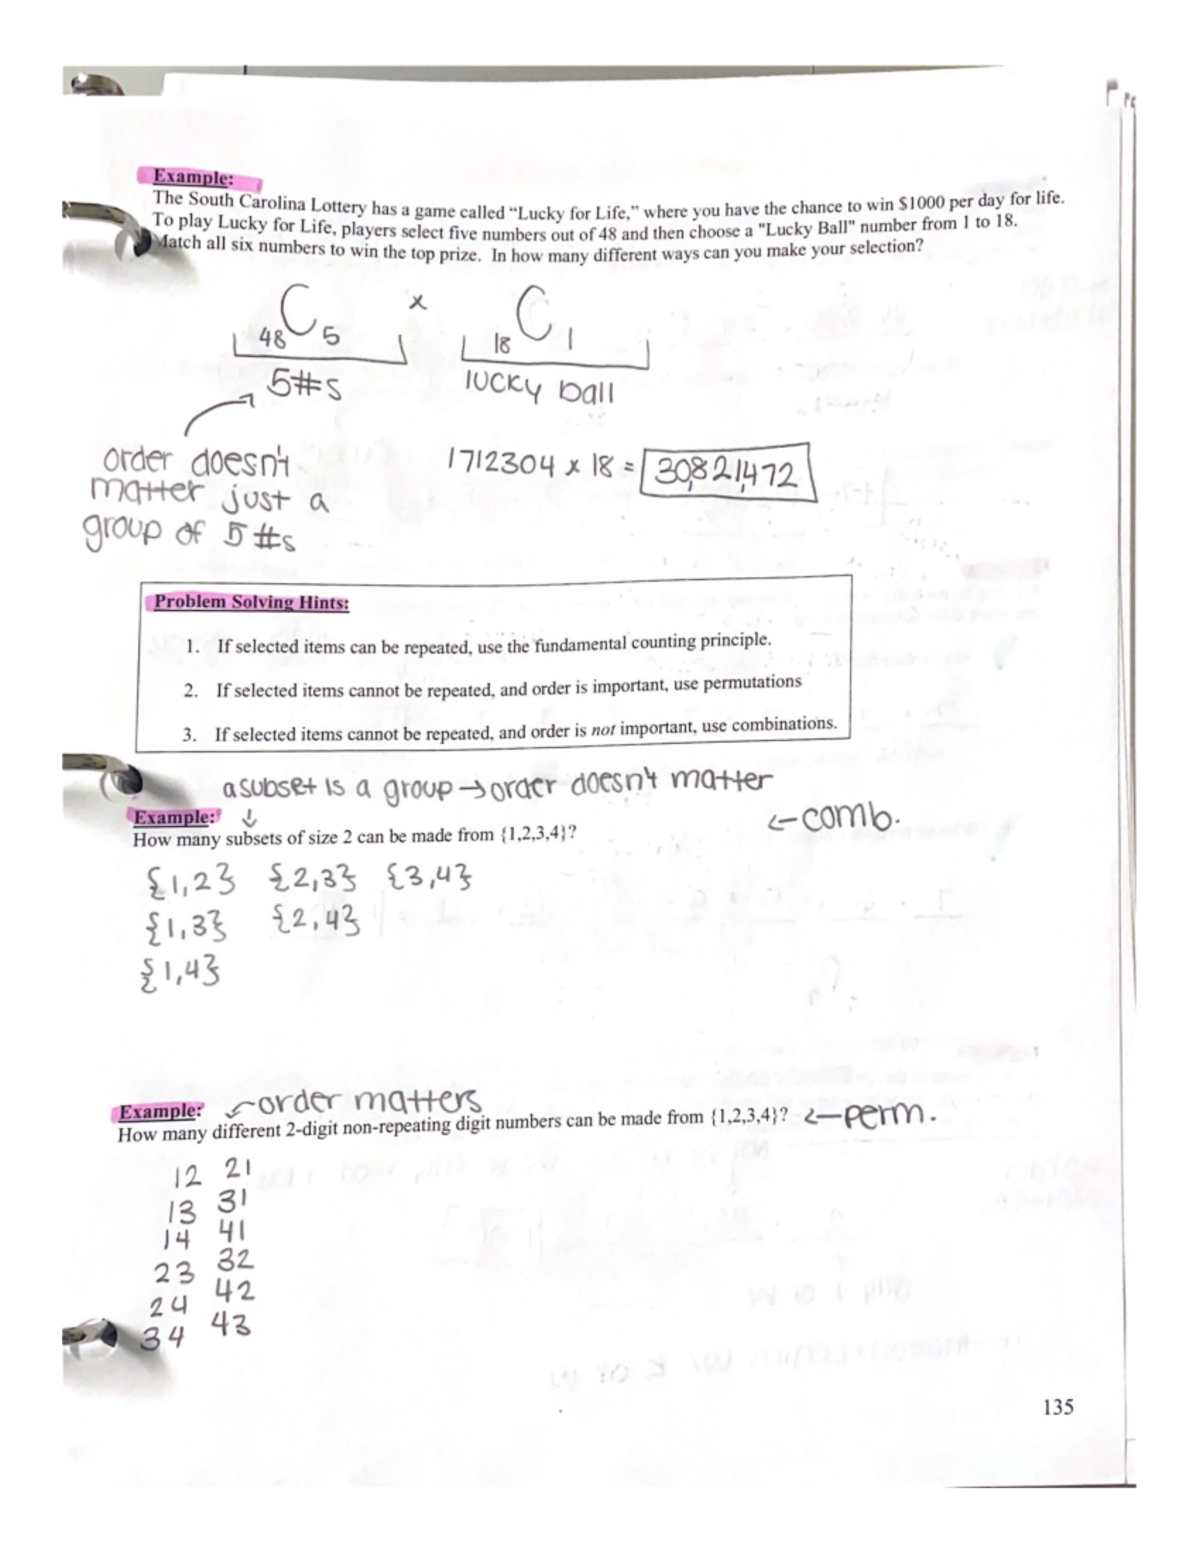 Example:
The South Carolina Lottery has a game called “Lucky for Life,” where you have the chance to win $1000 per day for life.
To play Lucky for Life, players select five numbers out of 48 and then choose a "Lucky Ball" number from 1 to 18.
Match all six numbers to win the top prize. In how many different ways can you make your selection?
48C5 x 18C1
5#s lucky ball
order doesn't
matter just a
group of 5 #s
1712304 x 18 = 30,821,472
Problem Solving Hints:
1. If selected items can be repeated, use the fundamental counting principle.
2. If selected items cannot be repeated, and order is important, use permutations
3. If selected items cannot be repeated, and order is not important, use combinations.
a subset is a group → order doesn't matter
Example: ↓
← comb.
How many subsets of size 2 can be made from {1,2,3,4}?
{1,2} {2,3} {3,4}
{1,3} {2,4}
{1,4}
Example: ← order matters
How many different 2-digit non-repeating digit numbers can be made from {1,2,3,4}? ← perm.
12 21
13 31
14 41
23 32
24 42
34 43
135